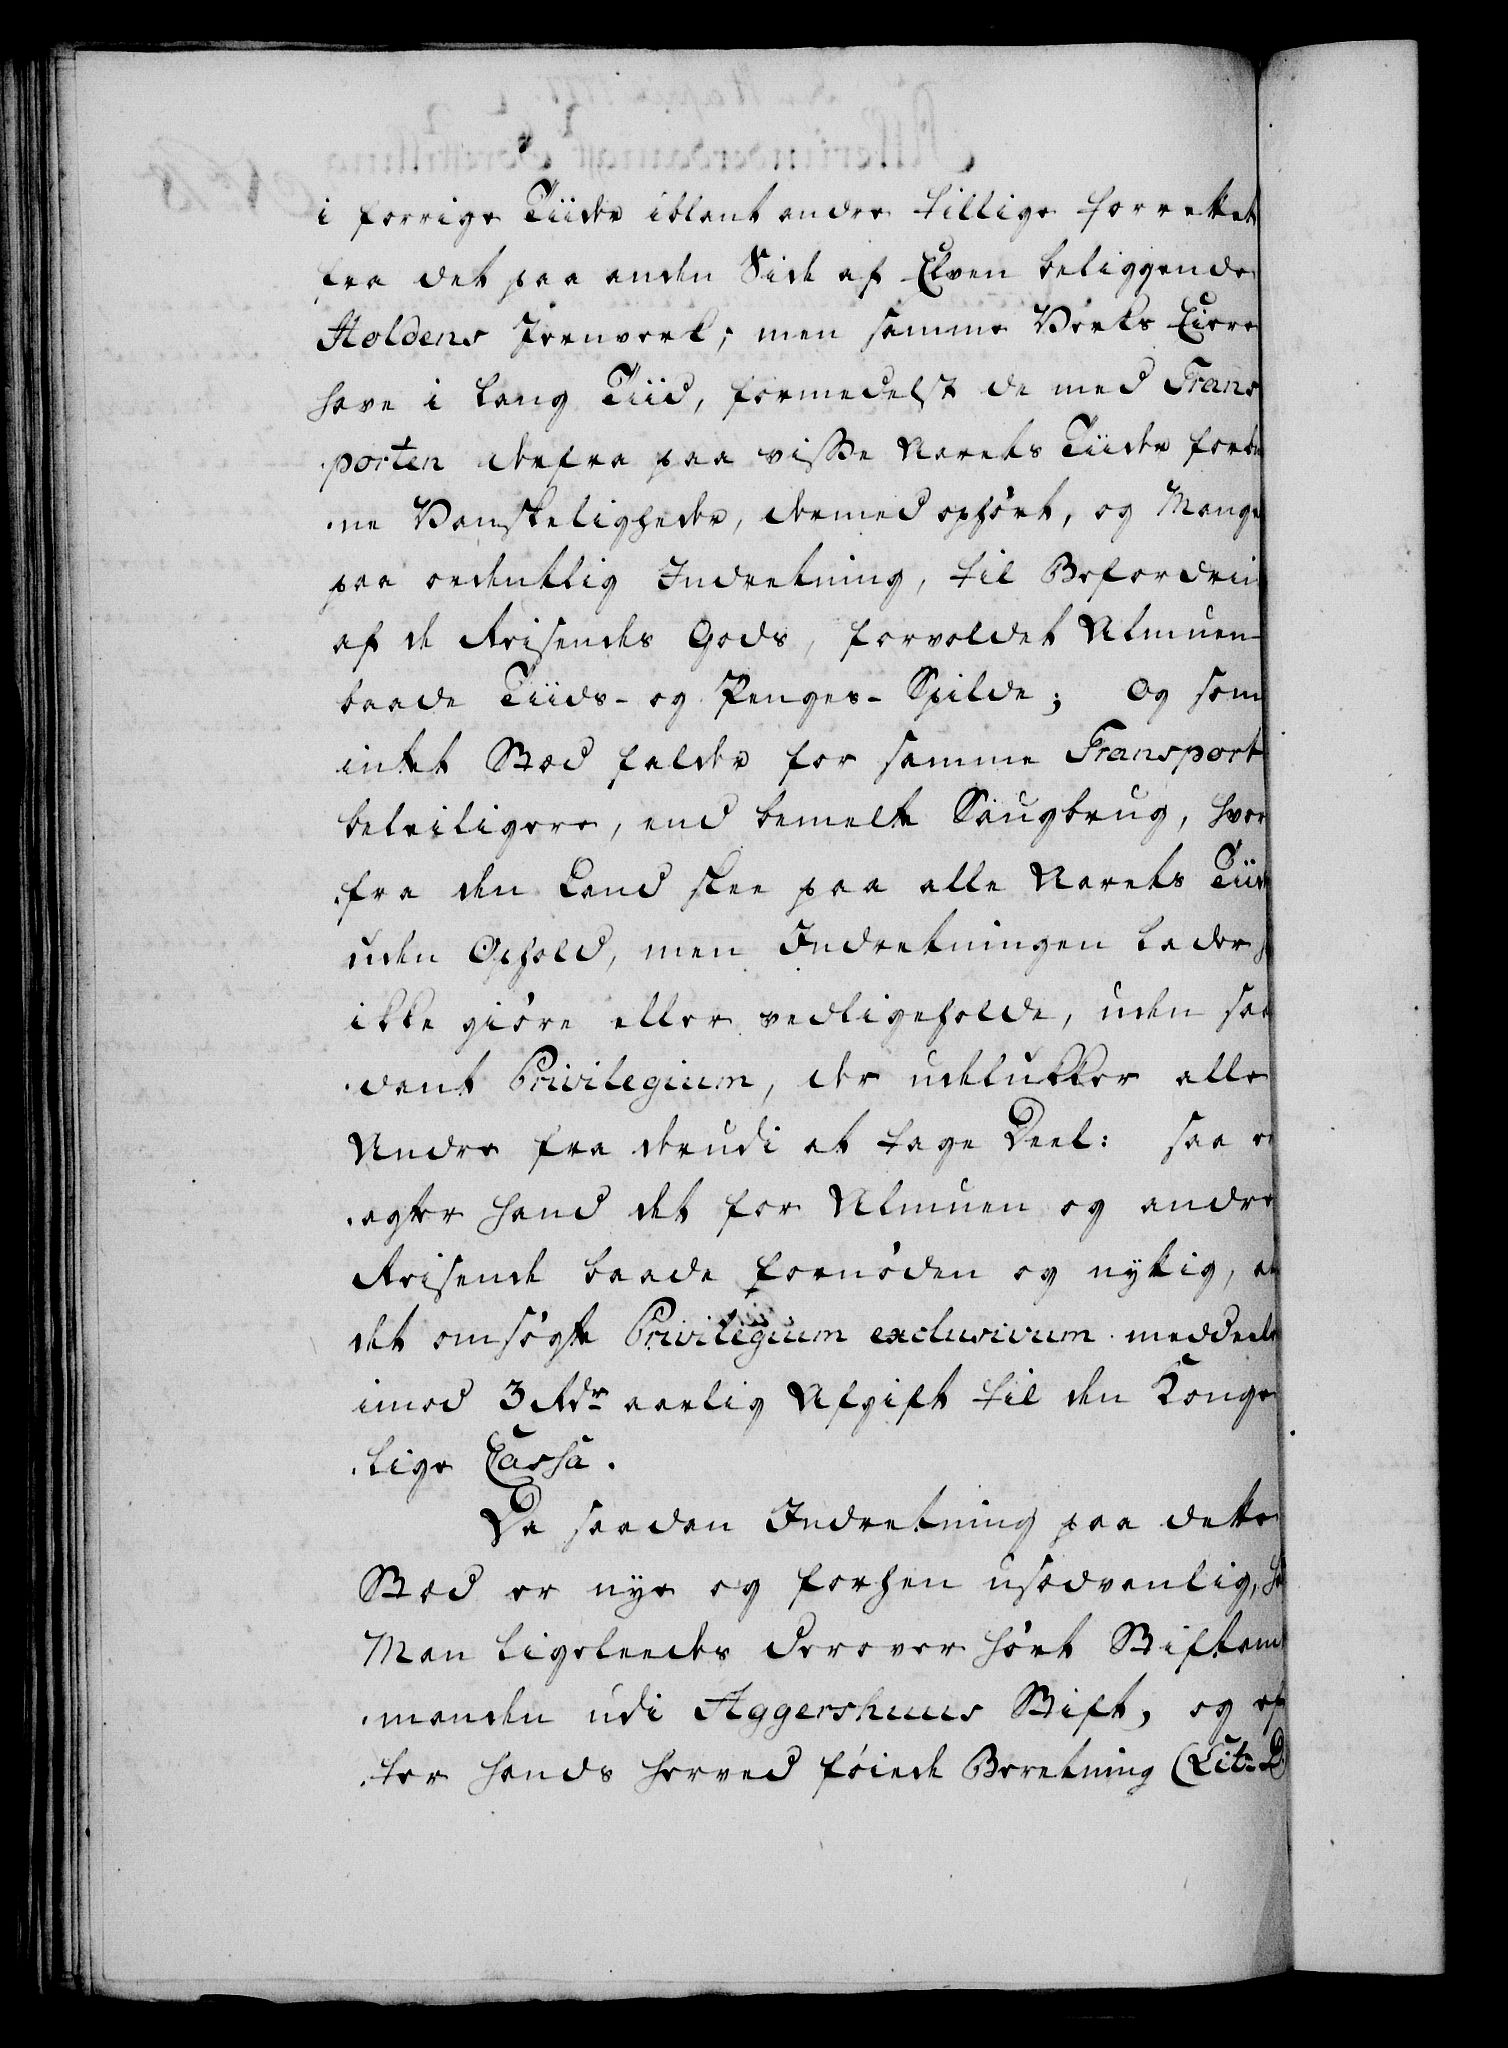 i forrige Tiider iblant andre tillige forrettet
fra det paa anden Side af Elven beliggende
Holdens Jernverk; men samme Verks Eiere
have i lang Tiid, formedelst de med Trans
porten derfra paa visse Aarets Tiider forbu
ne Vanskeligheder, dermed ophørt, og Mange
paa ordentlig Indretning, til Befordrin
af de Reisendes Gods, forvoldet Almuen
baade Tiids- og Penges-Spilde; Og som
intet Stæd falder for samme Transport
beleiligere, end bemelte Saugbrug, hvor
fra den Land skee paa alle Aarets Tiide
uden Ophold, men Indretningen lader
ikke giøre eller vedligeholde, uden saa
dant Privilegium, der udelukker alle
Andre fra derudi at tage Deel: saa
agter hand det for Almuen og andre
Reisende baade fornøden og nyttig, at
det omsøgte Privilegium exclusivum meddeele
imod 3 Rdr aarlig Afgift til den Konge
lige Cassa.
Da saadan Indretning paa dette
Stæd er nye og forhen usædvanlig, ha
Man ligeleedes derover hørt Stiftamt
manden udi Aggershuus Stift, og ef
ter hands herved føiede Beretning (Lit. D